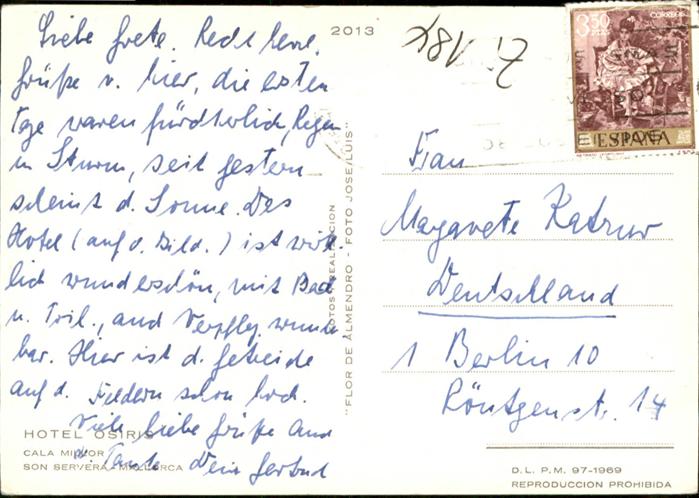 2013
Liebe Grete. Recht herzl.
Grüße v. hier, die ersten
Tage waren fürchterlich, Regen
u. Sturm, seit gestern
scheint d. Sonne. Das
Hotel (auf d. Bild.) ist wirk
lich wunderschön, mit Bad
u. Toil., auch Verpfleg. wunder
bar. Hier ist d. Getreide
auf d. Feldern schon hoch.
Viele liebe Grüße auch
d. Tante Dein
HOTEL OSIRIS
CALA MILLOR
SON SERVERA - MALLORCA
FOTOS Y REALIZACION
"FLOR DE ALMENDRO - FOTO JOSE/LUIS"
CORREOS
3,50
PTAS
ESPAÑA
Frau
Margarete
Deutschland
1 Berlin 10
Röntgenstr. 14
D.L. P.M. 97-1969
REPRODUCCION PROHIBIDA